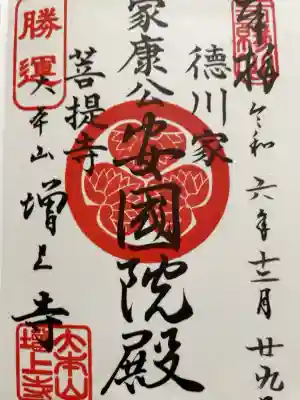 奉拝
令和六年十二月廿九日
徳川家
家康公安國院殿
菩提寺
勝運
大本山増上寺
大本山
増上寺